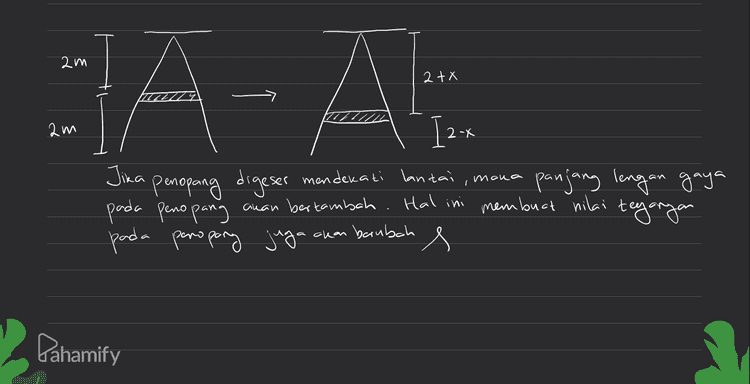 2m
2+x
2m
2-x
Jika penopang digeser mendekati lantai, maka panjang lengan gaya
pada penopang akan bertambah. Hal ini membuat nilai tegangan
pada penopang juga akan berubah
Pahamify